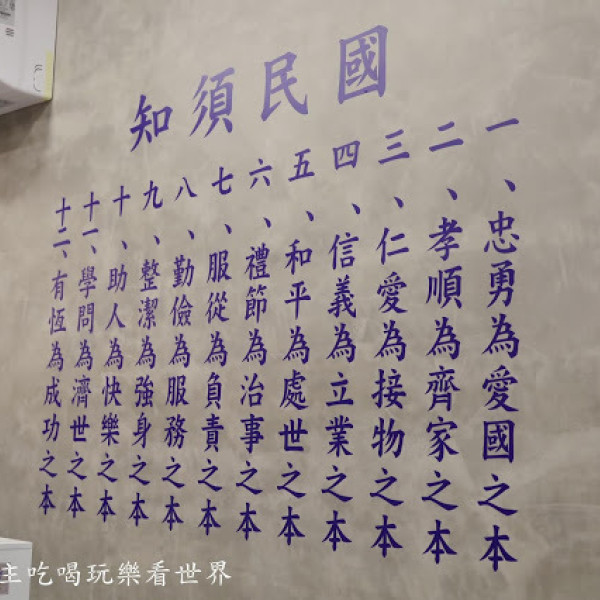 國民須知
一、忠勇為愛國之本
二、孝順為齊家之本
三、仁愛為接物之本
四、信義為立業之本
五、和平為處世之本
六、禮節為治事之本
七、服從為負責之本
八、勤儉為服務之本
九、整潔為強身之本
十、助人為快樂之本
十一、學問為濟世之本
十二、有恆為成功之本
主吃喝玩樂看世界